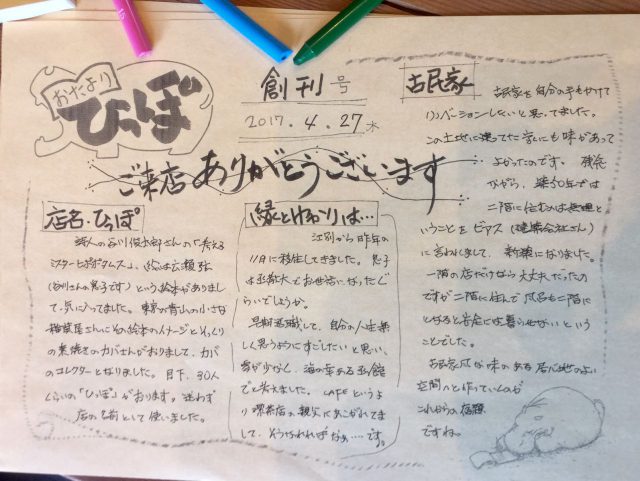 おたより
ひっぽ
創刊号
2017.4.27 木
ご来店ありがとうございます
店名・ひっぽ
詩人の谷川俊太郎さんの「考える
ミスター・ヒポポタムス」、絵は広瀬弦
(谷川さんの息子です)という絵本がありまし
て、気に入ってました。東京の青山の小さな
雑貨屋さんにその絵本のイメージとそっくり
の素焼きのカバさんがおりまして、カバ
のコレクターとなりました。目下、30人
くらいの「ひっぽ」がおります。迷わず
店の名前として使いました。
縁とゆかりは…
江別から昨年の
11月に移住してきました。息子
は
大でお世話になったぐ
らいでしょうか。
早期退職して、自分の人生楽
しく思うようにすごしたいと思い、
雪が少なく、海の幸ある
でと考えました。CAFEというよ
り喫茶店の親父にあこがれてま
して、そうなれればなぁ…です。
古民家
古民家を自分の手もかけて
リノベーションしたいと思ってました。
この土地に建ってた家にも味があって
よかったのです。残念
ながら、築50年では
二階に住むには無理と
いうことをピアス(建築会社さん)
に言われまして、新築になりました。
一階の店だけなら大丈夫だったの
ですが二階に住んで風呂も二階に
となると
には暮らせないという
ことでした。
古民家風な味のある居心地のよい
空間へと作っていくのが
これからの宿題
ですね。